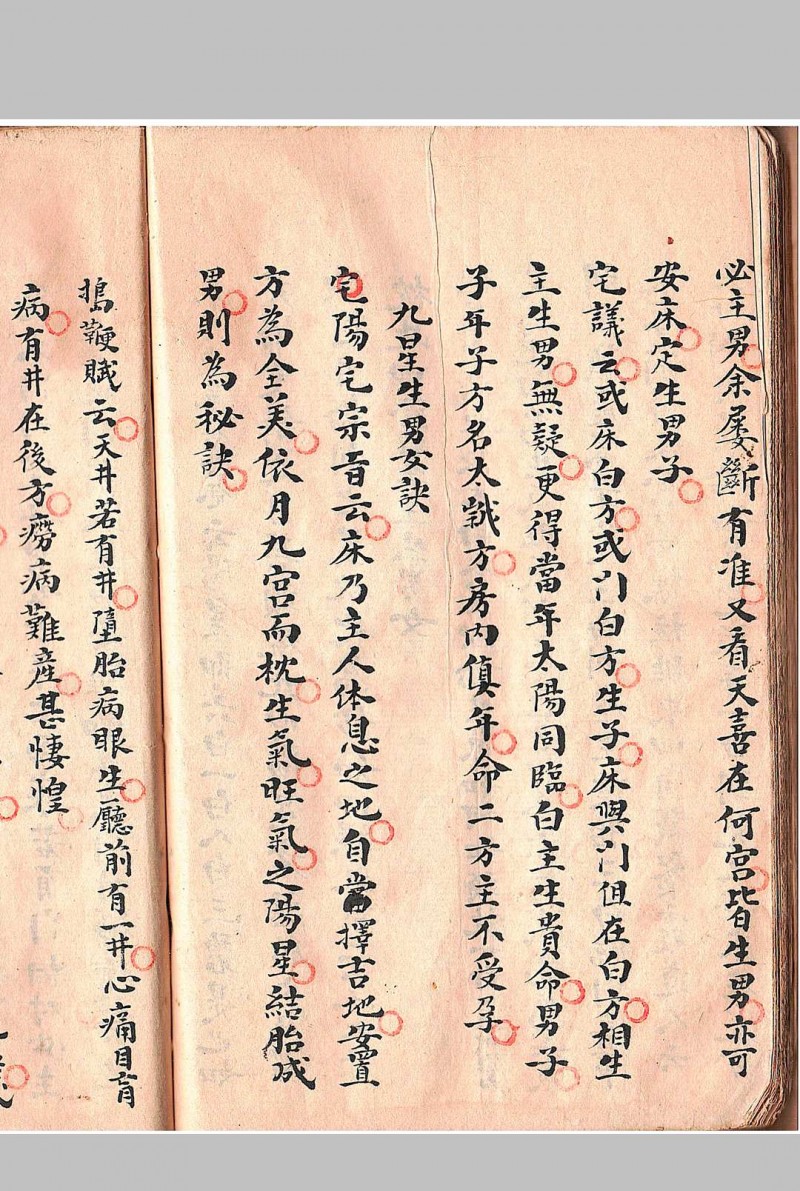 必主男余屡斷有准又看天喜在何宫皆生男亦可
安床定生男子
宅議云或床白方或门白方生子床與门但在白方相生
主生男無疑更得當年太陽同臨白主生貴命男子
子年子方名太戠方房内慎年命二方主不受孕
九星生男女訣
宅陽宅宗旨云床乃主人体息之地自當擇吉地安置
方為全美依月九宫而枕生氣旺氣之陽星結胎成
男則為秘訣
搗鞭賦云天井若有井墮胎病眼生廳前有一井心痛目盲
病有井在後方癆病難產甚悽惶